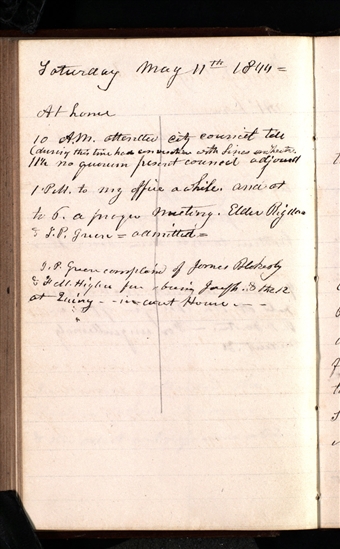 Saturday May 11th 1844=
At home
10 A.M. attended city council till
(during this time had conversation with
11½ no quorum present council adjourned
1 P.M. to my office a while. and at
to 6. a prayer meeting. Elder Rigdon
& J. P. Green = admitted=
J. P. Green complaind of James Blakesly
& F. M. Higbee for abusing Joseph. & the 12
at Quincy - - in court House - -